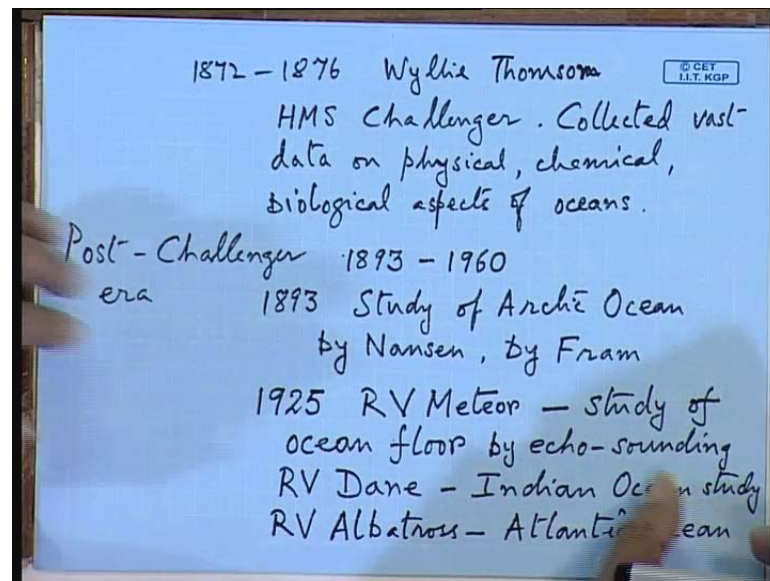 1872 – 1876 Wyllie Thomson
© CET
I.I.T. KGP
HMS Challenger. Collected vast
data on physical, chemical,
biological aspects of oceans.
Post-Challenger 1893 – 1960
era 1893 Study of Arctic Ocean
by Nansen, by Fram
1925 RV Meteor – study of
ocean floor by echo-sounding
RV Dane – Indian study
RV Albatross –